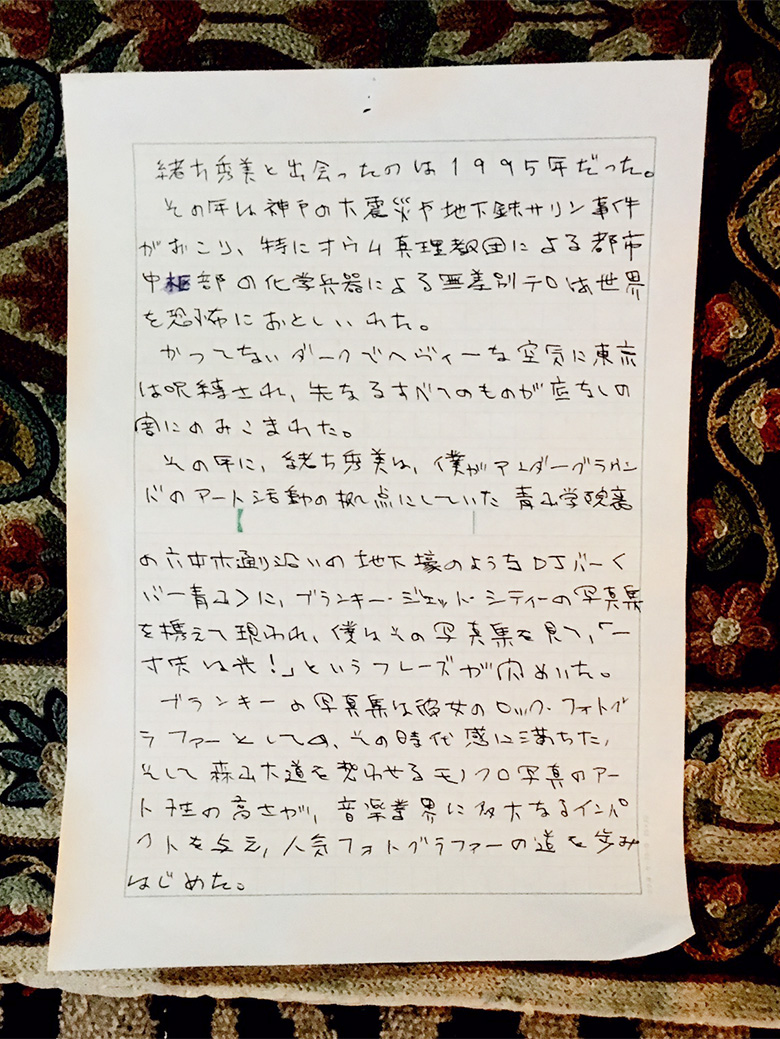 緒方秀美と出会ったのは1995年だった。
その年は神戸の大震災や地下鉄サリン事件
がおこり、特にオウム真理教団による都市
中枢部の化学兵器による無差別テロは世界
を恐怖におとしいれた。
かつてないダークでヘヴィーな空気に東京
は呪縛され、先なるすべてのものが底なしの
闇にのみこまれた。
その年に、緒方秀美は、僕がアンダーグラウン
ドのアート活動の拠点にしていた青山学院裏
の六本木通り沿いの地下壕のようなDJバー<
バー青山>に、ブランキー・ジェット・シティーの写真集
を携えて現われ、僕はその写真集を見て、「一
寸先は光!」というフレーズが閃めいた。
ブランキーの写真集は彼女のロック・フォトグ
ラファーとしての、その時代感に満ちた、
そして森山大道を想わせるモノクロ写真のアー
ト性の高さが、音楽業界に多大なるインパ
クトを与え、人気フォトグラファーの道を歩み
はじめた。